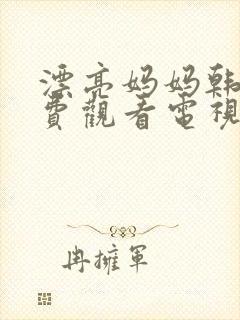 漂亮妈妈韩
費觀看電視
冉擁軍